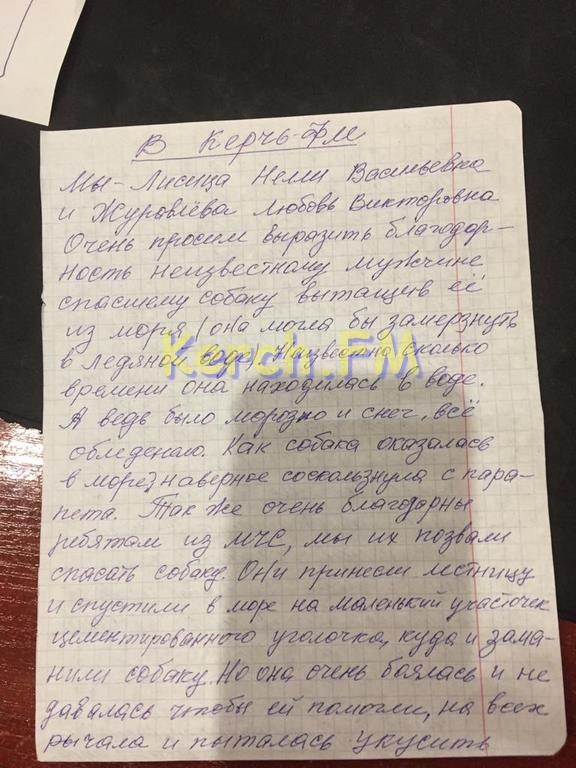 В Керчь-Фм
Мы - Лисица Нелли Васильевна
и Журовлёва Любовь Викторовна
Очень просим выразить благодар-
ность неизвестному мужчине
спасшему собаку вытащив её
из моря (она могла бы замерзнуть
в ледяной воде). Неизвестно сколько
времени она находилась в воде.
А ведь было морозно и снег, всё
обледенело. Как собака оказалась
в море, наверное соскользнула с пара-
пета. Так же очень благодарны
ребятам из МЧС, мы их позвали
спасать собаку. Они принесли лестницу
и спустили в море на маленький участочек
цементированного уголочка, куда и зама-
нили собаку. Но она очень боялась и не
давалась чтобы ей помогли, на всех
рычала и пыталась укусить
Kerch.FM